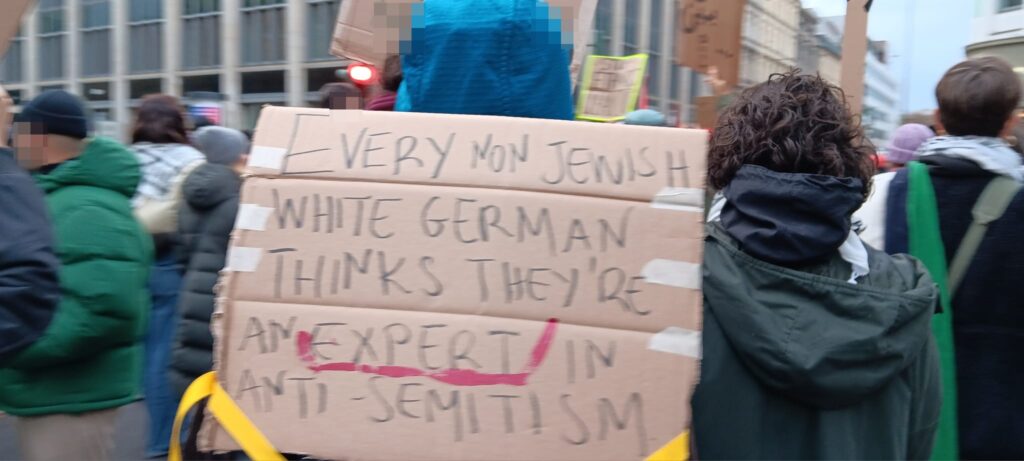 EVERY NON JEWISH
WHITE GERMAN
THINKS THEY'RE
AN EXPERT IN
ANTI-SEMITISM.